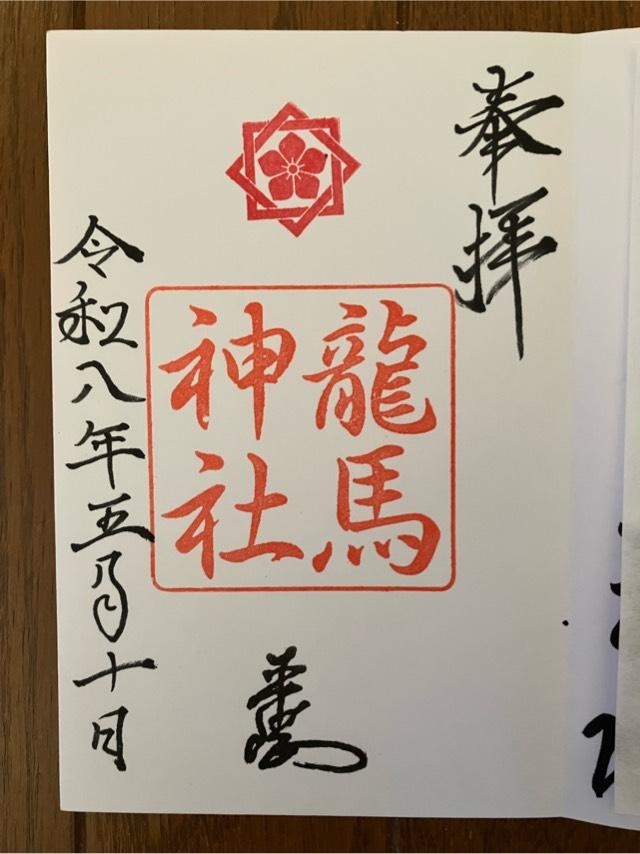 奉拝
龍馬
神社
令和八年五月十日